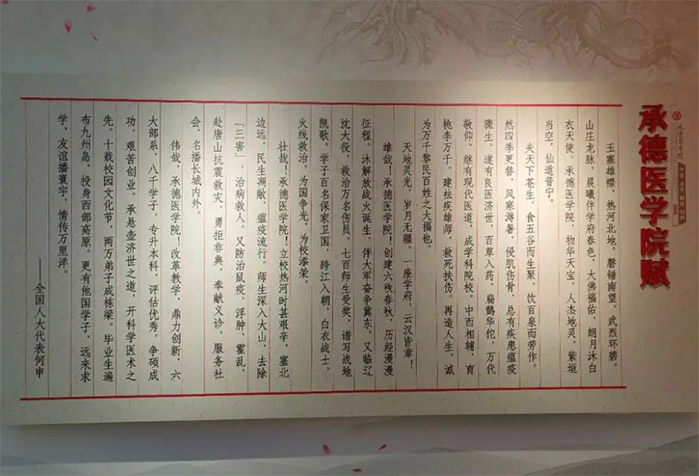 承德医学院赋
玉塞雄襟，热河北地。磬锤南望，武烈环碧。
山庄龙脉，晨曦伴学府春色。大佛福佑，朗月沐白
衣天使。承德医学院，物华天宝，人杰地灵。紫垣
当空，仙道普宁。
夫天下苍生，食五谷而生聚，饮百泉而劳作。
然四季更替，风寒海暑，侵肌伤骨，总有疾患瘟疫
骤生。遂有良医济世，百草入药。扁鹊华佗，万代
敬仰。继有现代医道，成学科院校。中西相辅，育
桃李万千，建祛疾雄师，救死扶伤。再造人生，诚
为万千黎民百姓之大福也。
天地灵光，岁月无疆。一座学府，云汉皆章！
雄哉！承德医学院！创建六秩春秋，历经漫漫
征程。沐解放战火诞生，伴大军奋争冀东。又临辽
沈大役，救治万名伤员。七百师生受奖，谱写战地
凯歌。学子百名保家卫国。跨江入朝，白衣战士，
火线救治，为国争光，为校添荣。
壮哉！承德医学院！立校热河时甚艰辛，塞北
边远，民生凋敝，瘟疫流行。师生深入大山，去除
“三害”，治病救人。又防治鼠疫、浮肿、霍乱，
赴唐山抗震救灾、勇拒非典，奉献义诊，服务社
会，名播长城内外。
伟哉，承德医学院！改革教学，鼎力创新，六
大部系，八千学子。专升本科，评估优秀。争硕成
功，艰苦创业。承悬壶济世之道，开科学医术之
先。十载校园文化节，两万弟子成栋梁。毕业生遍
布九州岛，投身西部高原。更有他国学子，远来求
学，友谊播寰宇，情传万里迷。
——全国人大代表何申